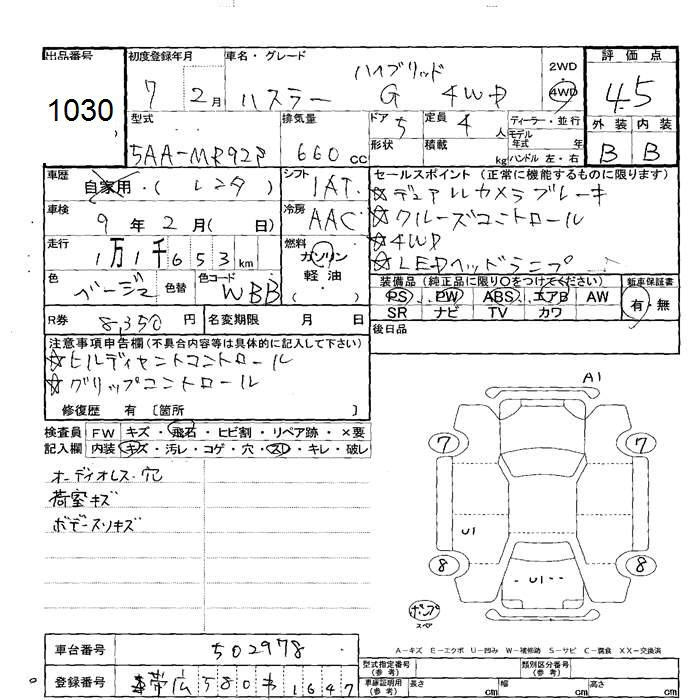 出品番号 初度登録年月 車名・グレード 評価点
1030 7 2月 ハスラー ハイブリッド G 4WD 2WD 4WD 4.5
型式 排気量 ドア 5 定員 4人 ディーラー・並行 外装 内装
5AA-MR92P 660cc 形状 積載 kg モデル年式 年 ハンドル 左・右 B B
車歴 自家用・(レンタ) シフト IAT セールスポイント(正常に機能するものに限ります)
車検 9年2月(日) 冷房 AAC ☆デュアルカメラブレーキ
☆クルーズコントロール
走行 1万1千653km 燃料 ガソリン 軽油 ( ・ ) ☆4WD
☆LEDヘッドランプ
色 ベージュ 色替 色コード WBB 装備品(純正品に限り○をつけてください) 新車保証書
PS PW ABS エアB AW 有・無
SR ナビ TV カワ
R券 8,350円 名変期限 月 日 後日品
注意事項申告欄(不具合内容等は具体的に記入して下さい)
☆ヒルディセントコントロール
☆グリップコントロール
修復歴 有 [箇所 ]
検査員 FW キズ・飛石・ヒビ割・リペア跡・×要
記入欄 内装 キズ・汚レ・コゲ・穴・スレ・キレ・破レ
オーディオレス・穴
荷室キズ
ボデースリキズ
A1
7 7
U1
8 8
U1
ポンプ
スペア
A-キズ E-エクボ U-凹み W-補修跡 S-サビ C-腐食 XX-交換済
車台番号 502978 型式指定番号(参考) 類別区分番号(参考)
登録番号 帯広 580 1647 車庫証明用(参考) 長さ cm 幅 cm 高さ cm